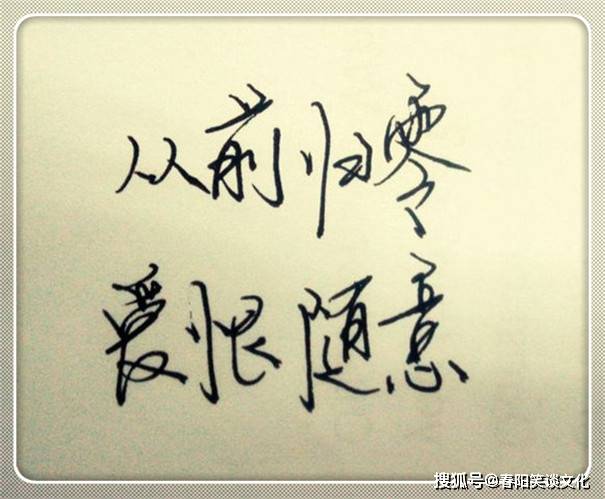 从前归零
爱恨随意
搜狐号@春阳笑谈文化